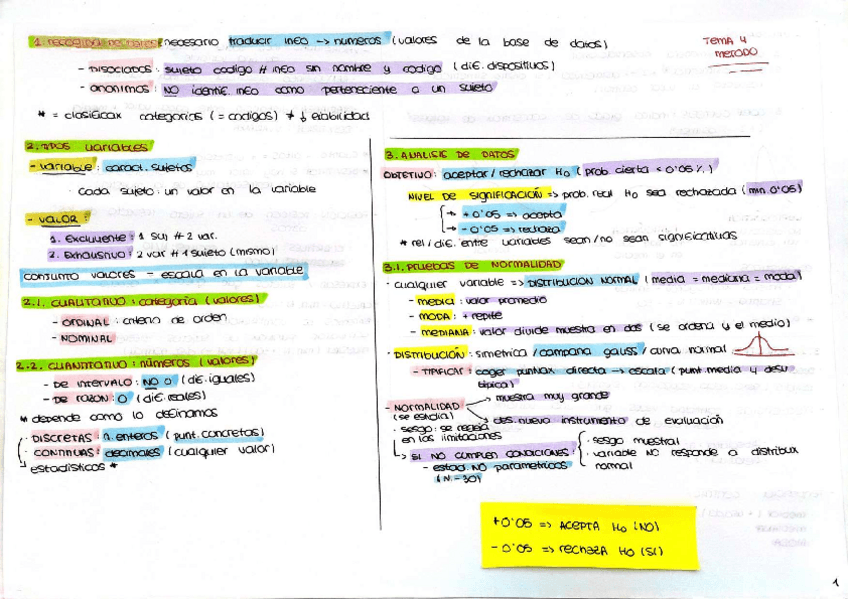 1. RECOGIDA DE DATOS: necesario traducir info → números (valores de la base de datos)
TEMA 4
METODO
- DISOCIADOS: sujeto codigo ≠ info sin nombre y codigo (dif. dispositivos)
- anonimos: NO identif. info como perteneciente a un sujeto
* = clasificar categorias (= codigos) ≠ ↓ fiabilidad
2. TIPOS VARIABLES
- VARIABLE: caract. sujetos
· cada sujeto: un valor en la variable
- VALOR:
1. Excluyente: 1 suj ≠ 2 var.
2. EXHAUSTIVO: 2 var ≠ 1 sujeto (mismo)
CONJUNTO VALORES - escala en la variable
2.1. CUALITATIVO: categoria (valores)
- ORDINAL: criterio de orden
- NOMINAL
2.2. CUANTITATIVO: números (valores)
- DE INTERVALO: NO 0 (dif. iguales)
- DE RAZON: 0 (dif. reales)
* depende como lo definamos
DISCRETAS: n. enteros (punt. concretos)
CONTINUAS: decimales (cualquier valor)
→ estadísticos *
3. ANALISIS DE DATOS
OBJETIVO: aceptar/rechazar H0 (prob. cierta < 0'05%)
NIVEL DE SIGNIFICACIÓN => prob. real H0 sea rechazada (min. 0'05)
→ +0'05 => acepto
→ -0'05 => rechazo
* rel/dif. entre variables sean/no sean significativas
3.1. PRUEBAS DE NORMALIDAD
· cualquier variable => DISTRIBUCIÓN NORMAL (media = mediana = moda)
- MEDIA: valor promedio
- MODA: + repite
- MEDIANA: valor divide muestra en dos (se ordena y el medio)
· DISTRIBUCIÓN: simetrica/campana gauss/curva normal
- TIPIFICAR: coger puntuax directa → escala (punt. media y desv típica)
- NORMALIDAD (se estudia)
→ muestra muy grande
→ des. nuevo instrumento de evaluación
· sesgo: se refleja en las limitaciones
→ SI NO CUMPLEN CONDICIONES:
· sesgo muestral
· variable NO responde a distribux normal
- estad. NO parametricos (N - 30)
+0'05 => ACEPTA H0 (NO)
-0'05 => rechaza H0 (SI)
1